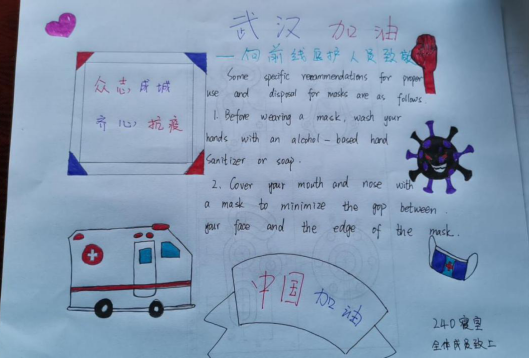 武汉 加油
—向前线医护人员致敬
众志成城
齐心抗疫
Some specific recommendations for proper
use and disposal for masks are as follows
1. Before wearing a mask, wash your
hands with an alcohol-based hand
sanitizer or soap.
2. Cover your mouth and nose with
a mask to minimize the gap between
your face and the edge of the mask.
中国加油
240寝室
全体成员致上